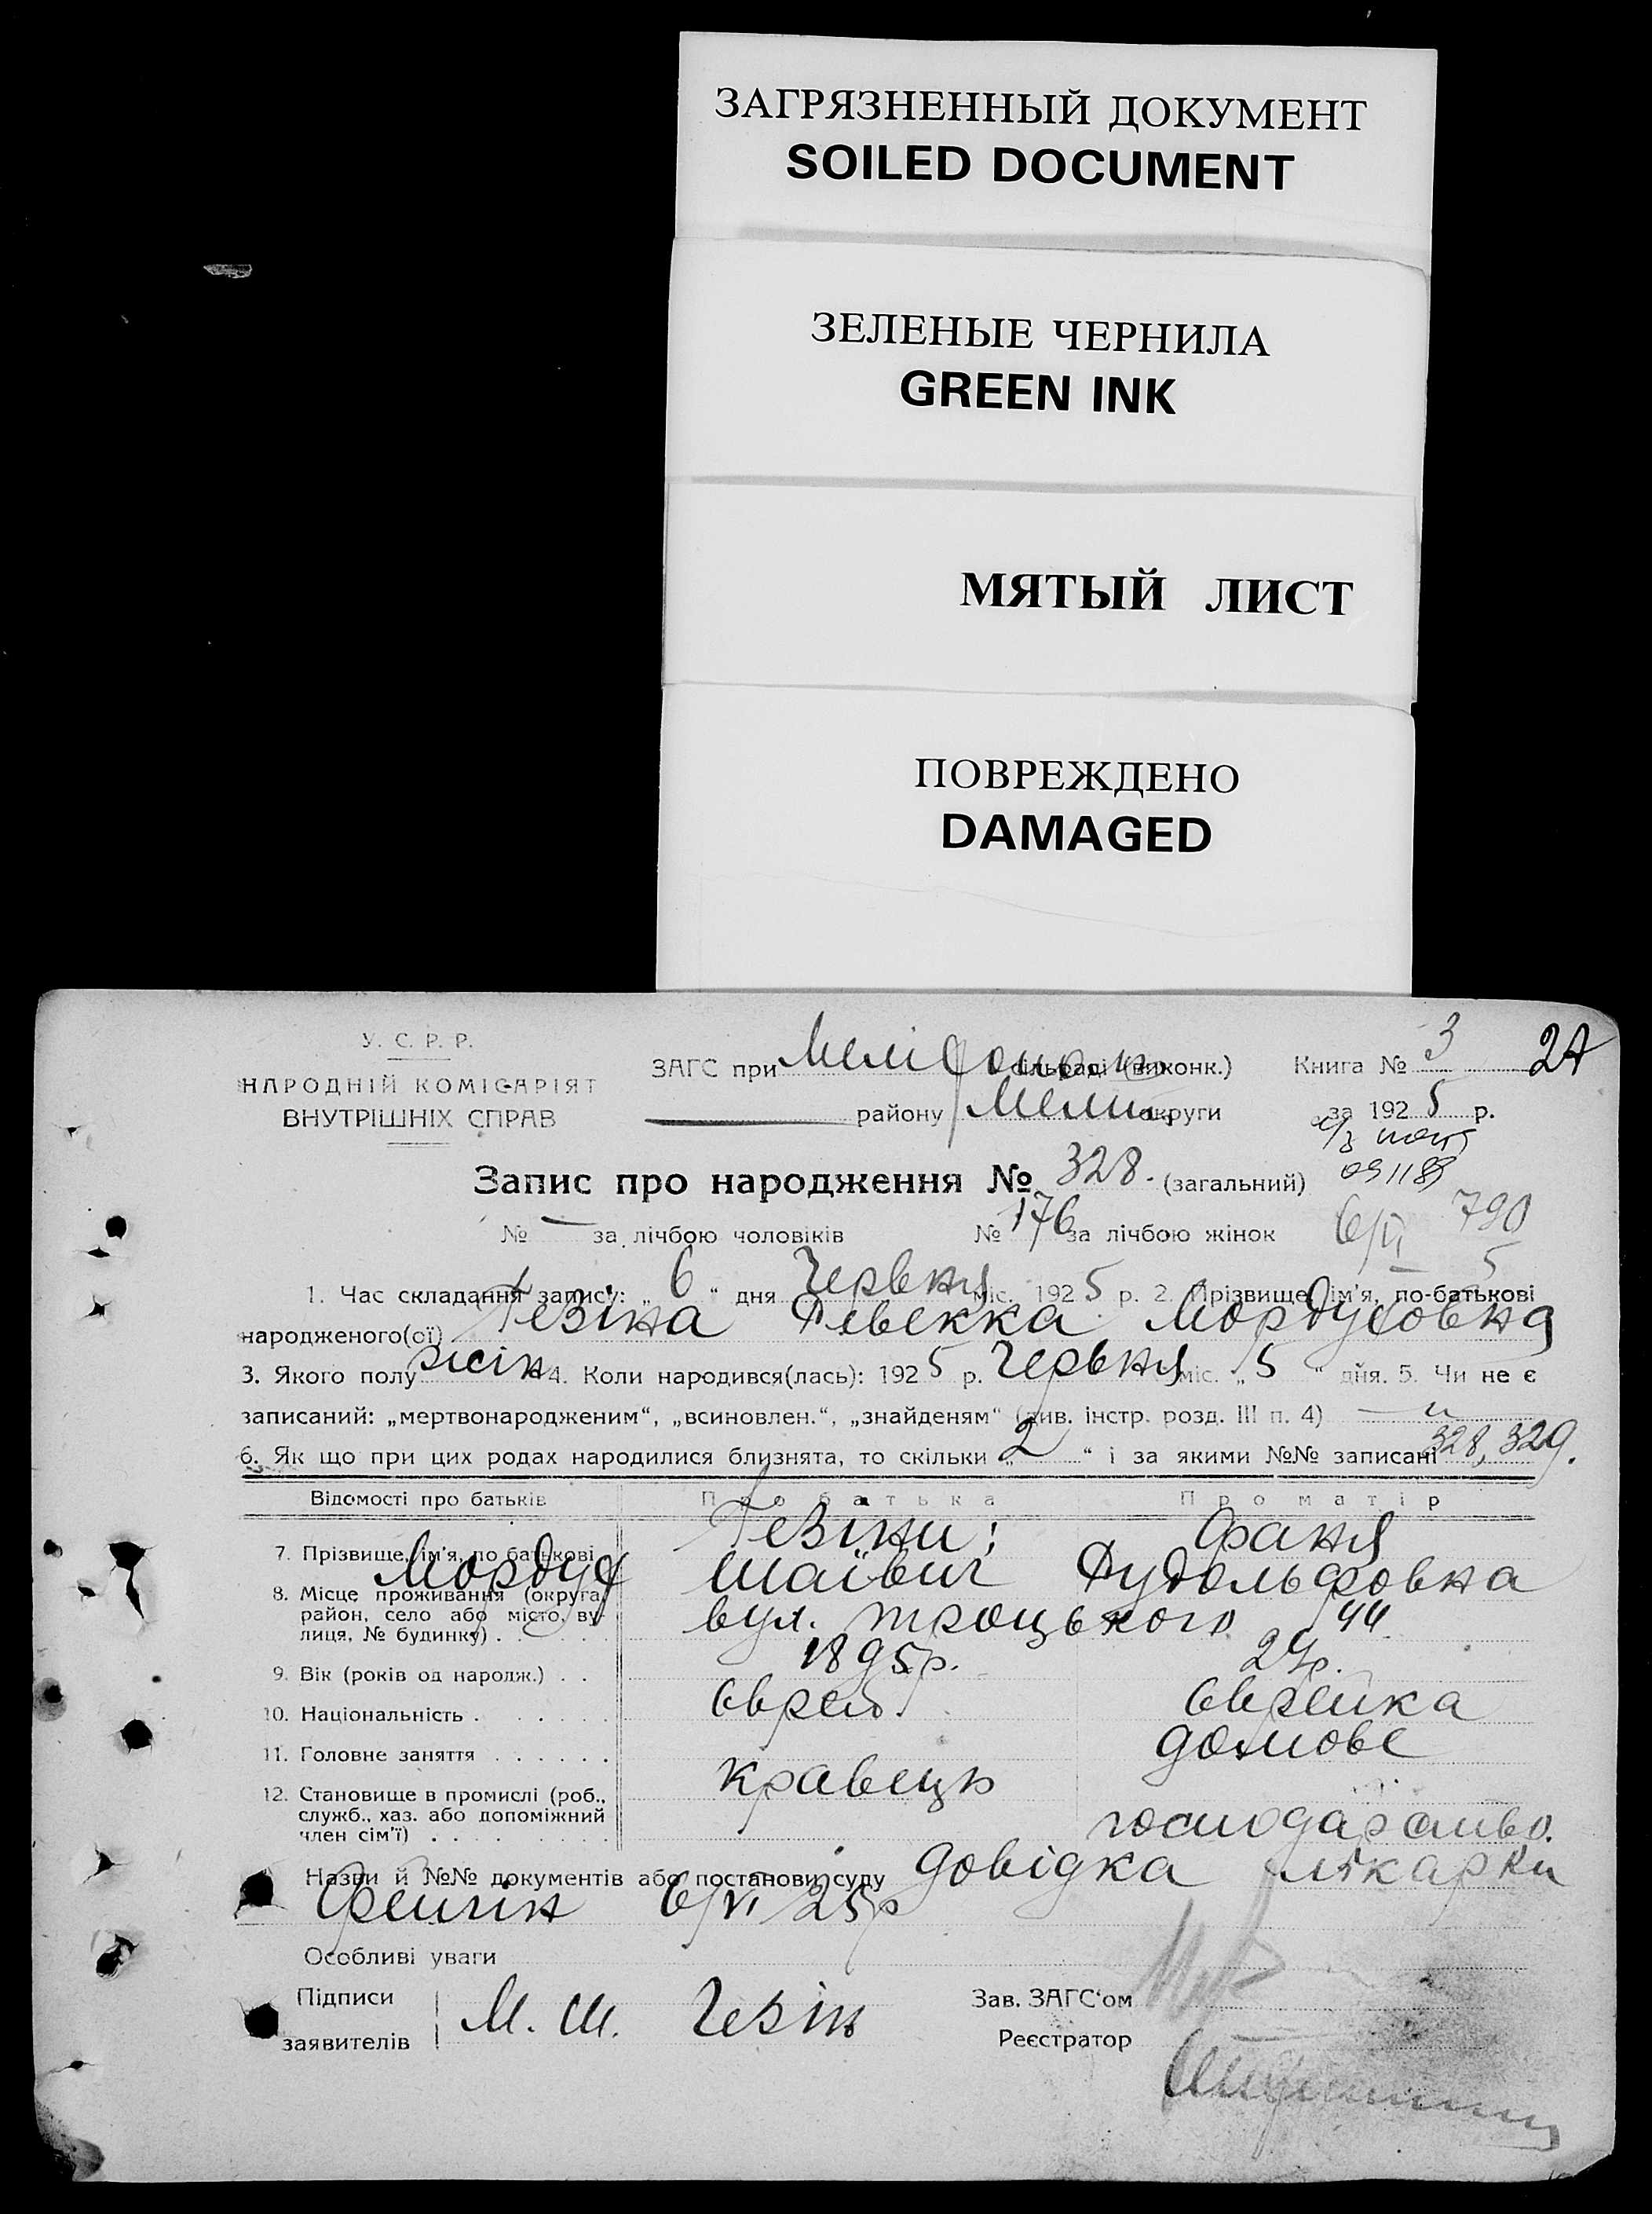 ЗАГРЯЗНЕННЫЙ ДОКУМЕНТ
SOILED DOCUMENT
ЗЕЛЕНЫЕ ЧЕРНИЛА
GREEN INK
МЯТЫЙ ЛИСТ
ПОВРЕЖДЕНО
DAMAGED
У. С. Р. Р.
НАРОДНІЙ КОМІСАРІЯТ
ВНУТРІШНІХ СПРАВ
ЗАГС при сільраді (виконк.)
Книга № 3
району Меліт. округи
за 1925 р.
Запис про народження № 328. (загальний)
№ — за лічбою чоловіків № 176 за лічбою жінок
790
5
1. Час складання запису: „ 6 “ дня Червня міс. 1925 р. 2. Прізвище, ім'я, по-батькові
народженого(ої) Гезіна Ревекка Мордуховна
3. Якого полу жін 4. Коли народився(лась): 1925 р. Червня міс. „ 5 “ дня. 5. Чи не є
записаний: „мертвонародженим“, „всиновлен.“, „знайденям“ (див. інстр. розд. III п. 4) —
6. Як що при цих родах народилися близнята, то скільки „ 2 “ і за якими №№ записані 328, 329.
Відомості про батьків Про батька Про матір
7. Прізвище, ім'я, по батькові Гезіни; Фаня
Мордух Шаївич Рудольфовна
8. Місце проживання (округа,
район, село або місто, ву-
лиця, № будинку) . . вул. Троцького 44
9. Вік (років од народж.) . . 1895р. 29р.
10. Національність . Єврей Єврейка
11. Головне заняття . . . . . . кравець домове
12. Становище в промислі (роб.,
служб., хаз. або допоміжний
член сім'ї) . . господарство.
Назви й №№ документів або постанови суду довідка лікарки
6/VI 25р
Особливі уваги
Підписи
заявителів
М. Ш. Гезін
Зав. ЗАГС'ом
Реєстратор